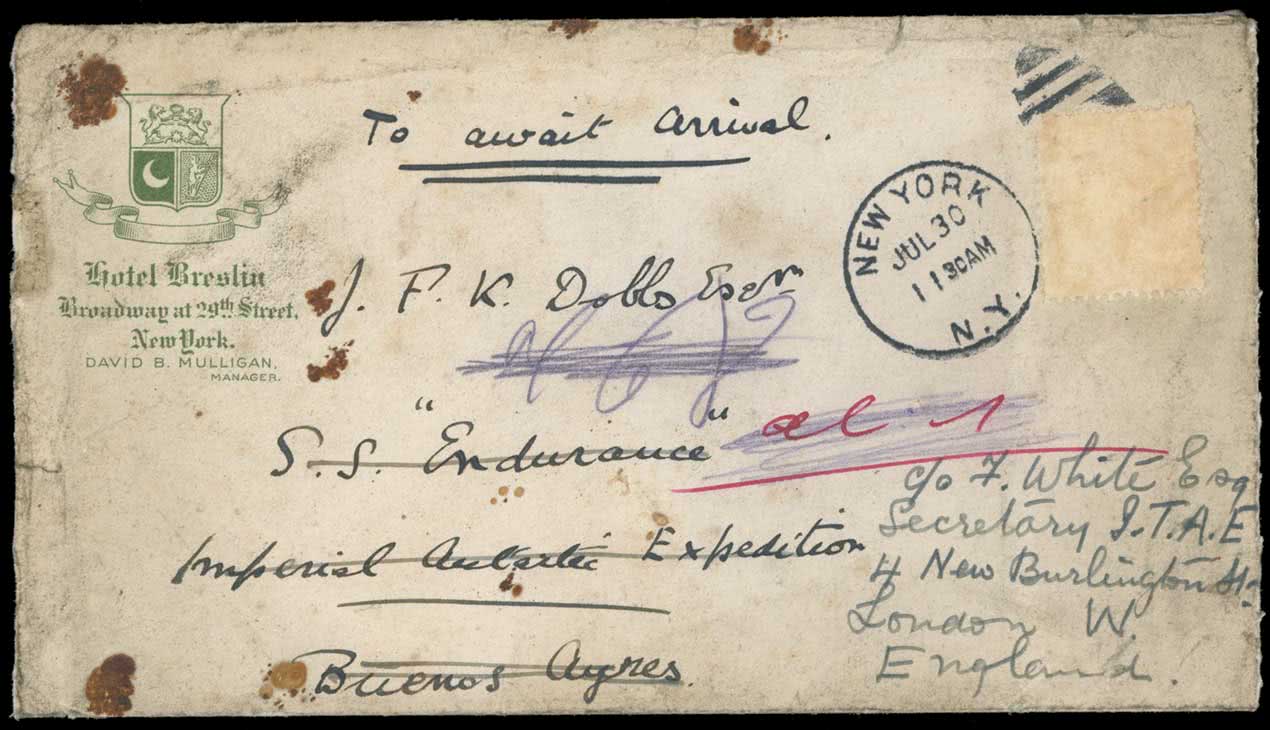 To await arrival.
Hotel Breslin
Broadway at 29th Street,
New York.
DAVID B. MULLIGAN,
MANAGER.
NEW YORK
JUL 30
11 30AM
N.Y.
J. F. K. Dobbs Esqr
S.S. "Endurance"
Imperial Expedition
Buenos Ayres
c/o F. White Esq
Secretary I.T.A.E
4 New Burlington St.
London W.
England.